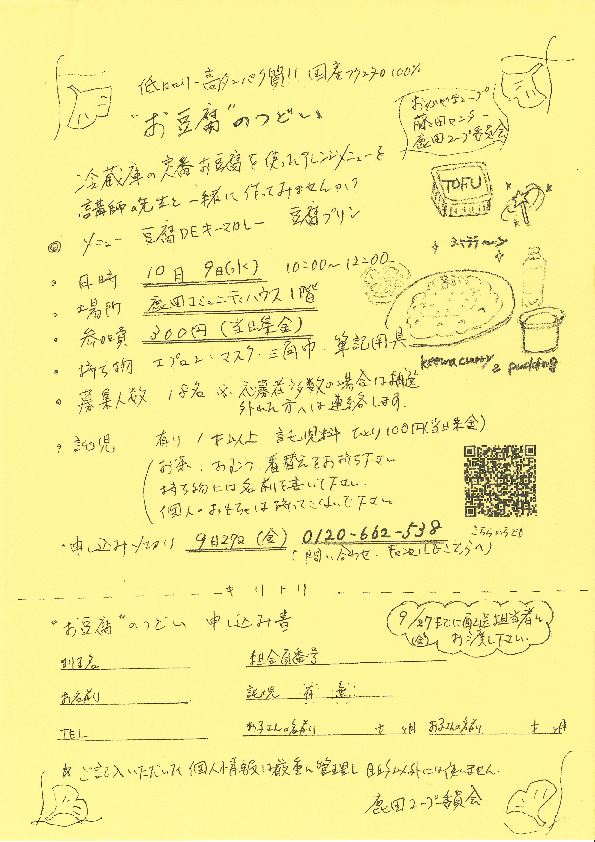 低カロリー 高タンパク質!! 国産フクユタカ100%
"お豆腐"のつどい
おかやまコープ
藤田センター
鹿田コープ委員会
冷蔵庫の定番お豆腐を使ったアレンジメニューを
講師の先生と一緒に作ってみませんか?
TOFU
◎ メニュー 豆腐DEキーマカレー 豆腐プリン
・日時 10月 9日(水) 10:00〜12:00
・場所 鹿田コミュニティハウス1階
・参加費 300円(当日集金)
・持ち物 エプロン・マスク・三角巾・筆記用具
keema curry & pudding
・募集人数 18名 ※応募者多数の場合は抽選
外れた方へは連絡します。
・託児 有り 1才以上 託児料 ひとり100円(当日集金)
お茶、おむつ、着替えをお持ち下さい
持ち物には名前を書いて下さい
個人のおもちゃは持ってこないで下さい
・申し込み〆切り 9月27日(金) 0120-662-538
こちらからも
(問い合わせ、
こちらへ)
キリトリ
"お豆腐"のつどい 申し込み書
9/27(金)までに配送担当者に
お渡し下さい。
組合員番号
お名前
託児 有 無
TEL
お子さんの名前 才 ヶ月 お子さんの名前 才 ヶ月
※ご記入いただいた個人情報は厳重に管理し目的以外には使いません。
鹿田コープ委員会